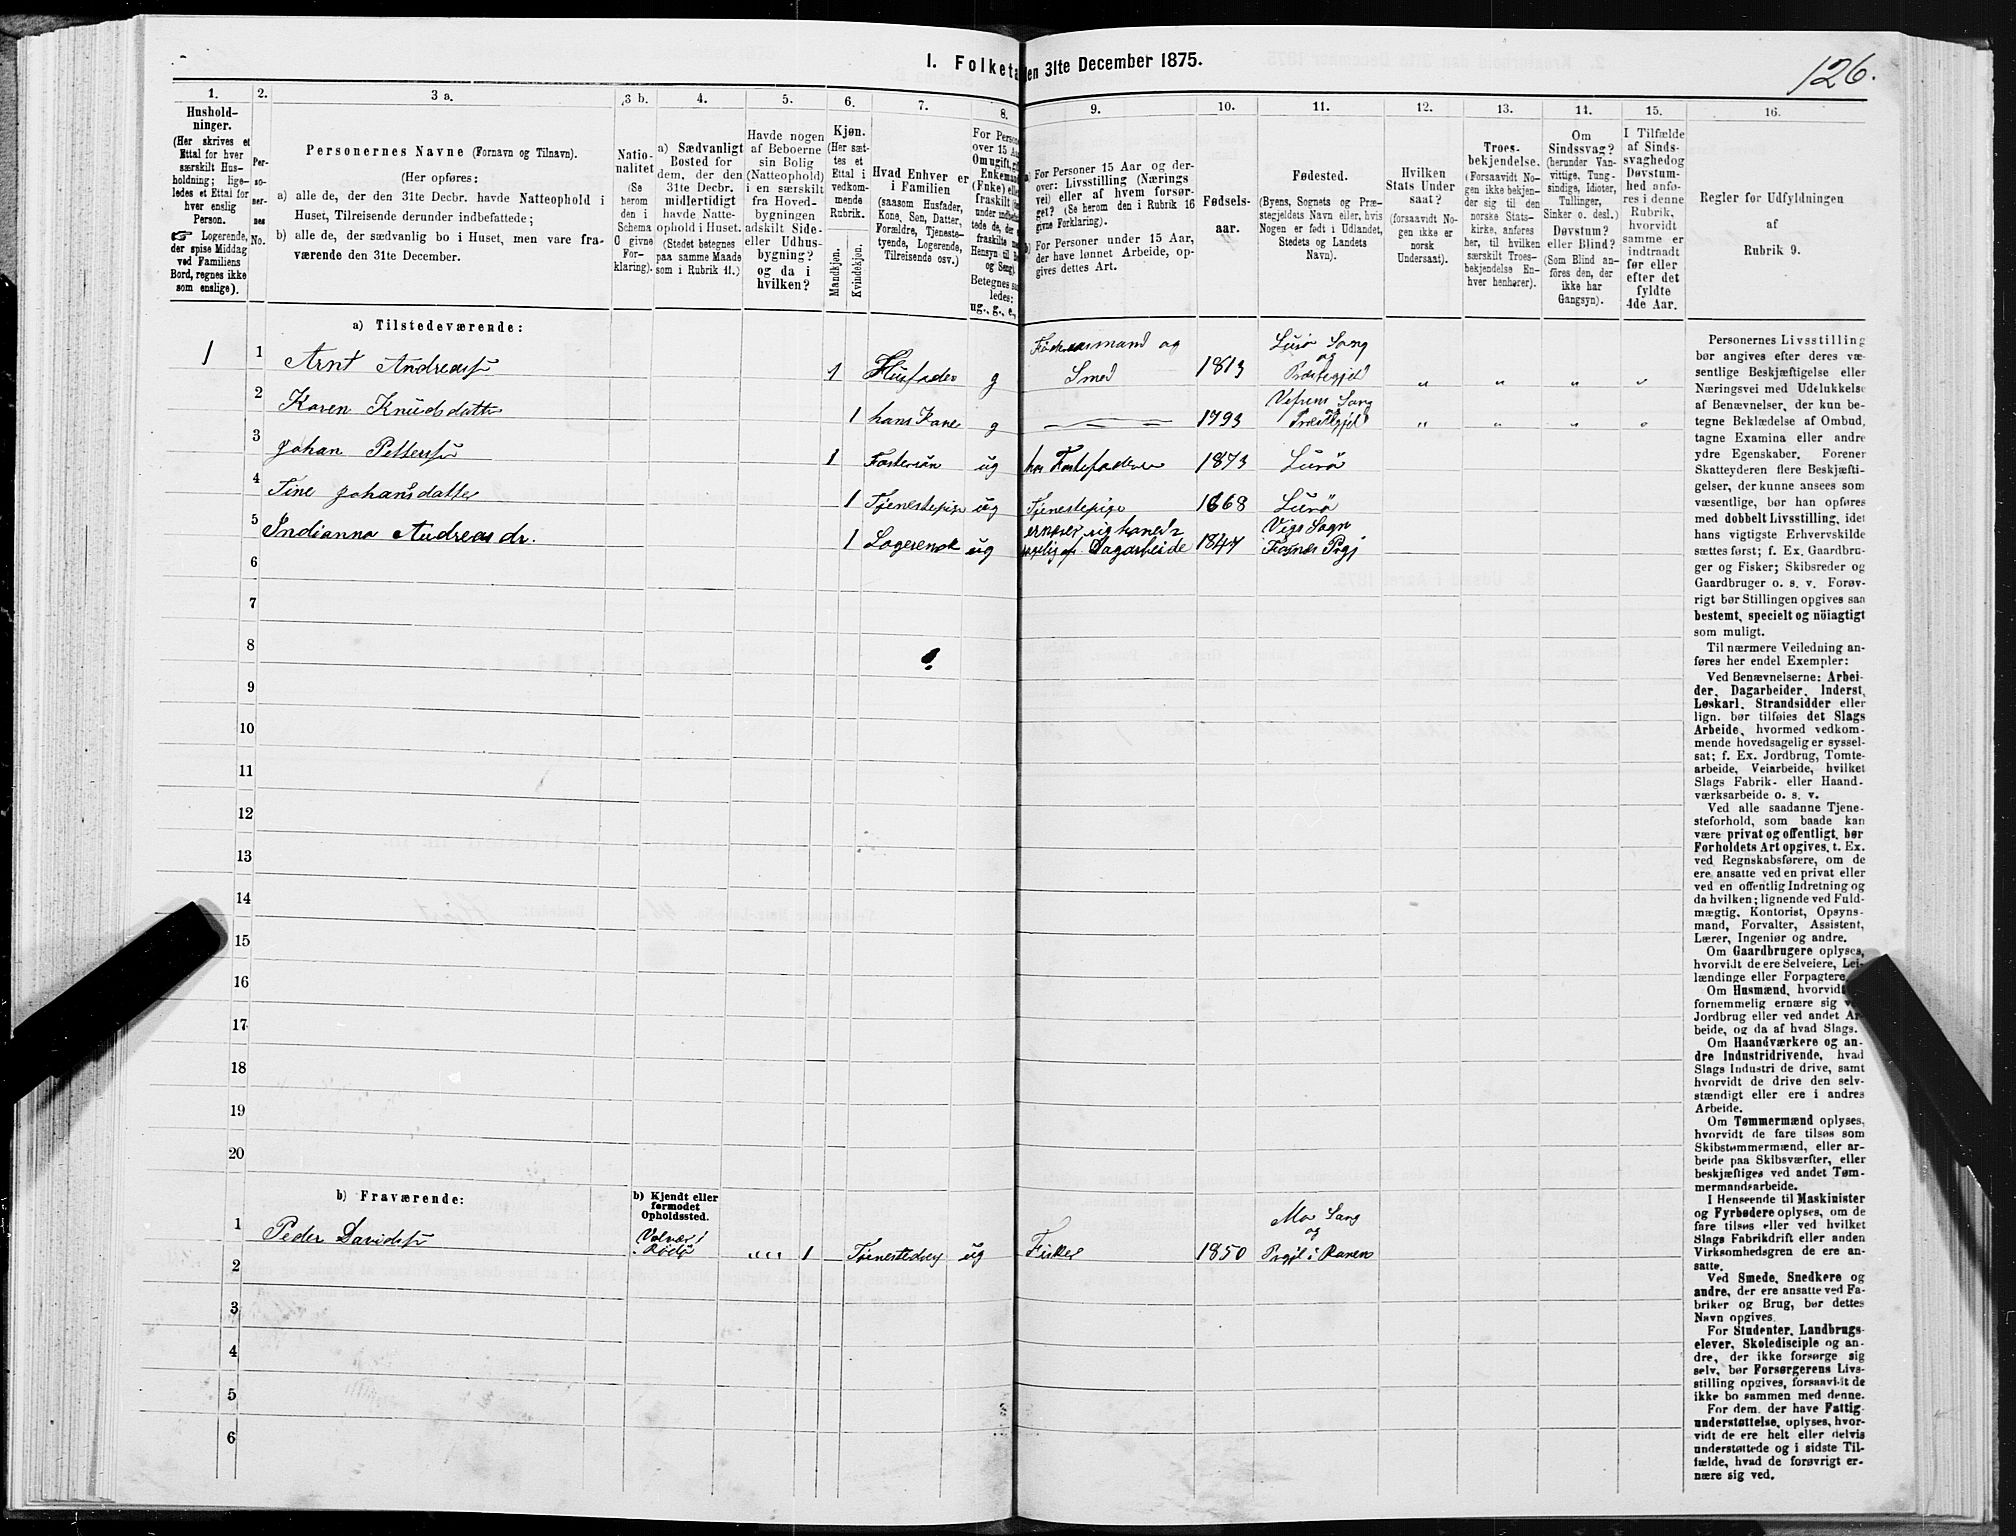 126.
I. Folketa en 31te December 1875.
1. 2. 3 a. 3 b. 4. 5. 6. 7. 8. 9. 10. 11. 12. 13. 14. 15. 16.
Hushold-
ninger.
(Her skrives et
Ettal for hver
særskilt Hus-
holdning; lige-
ledes et Ettal for
hver enslig
Person.
☞ Logerende,
der spise Middag
ved Familiens
Bord, regnes ikke
som enslige).
Per-
so-
ner-
nes
No.
Personernes Navne (Fornavn og Tilnavn).
(Her opføres:
a) alle de, der den 31te Decbr. havde Natteophold i
Huset, Tilreisende derunder indbefattede;
b) alle de, der sædvanlig bo i Huset, men vare fra-
værende den 31te December.
Natio-
nalitet
(Se
herom
den i
Schema
O givne
For-
klaring).
a) Sædvanligt
Bosted for
dem, der den
31te Decbr.
midlertidigt
havde Natte-
ophold i Huset.
(Stedet betegnes
paa samme Maade
som i Rubrik 11.)
Havde nogen
af Beboerne
sin Bolig
(Natteophold)
i en særskilt
fra Hoved-
bygningen
adskilt Side-
eller Udhus-
bygning?
og da i
hvilken?
Kjøn.
(Her sæt-
tes et
Ettal i
vedkom-
mende
Rubrik.
Mandkjøn.
Kvindekjøn.
Hvad Enhver er
i Familien
(saasom Husfader,
Kone, Søn, Datter,
Forældre, Tjeneste-
tyende, Logerende,
Tilreisende osv.)
For Person
over 15 Aa
Om ugift, gif
Enkemand
(Fnke) elle
fraskilt
under indbefa
tede de, der
fraskilte m
Hensyn til B
og Seng).
Betegnes sa
ledes:
ug., g., e.,
a) For Personer 15 Aar og der-
over: Livsstilling (Nærings
vei) eller af hvem forsør-
get? (Se herom den i Rubrik 16
givne Forklaring).
b) For Personer under 15 Aar,
der have lønnet Arbeide, op-
gives dettes Art.
Fødsels-
aar.
Fødested.
(Byens, Sognets og Præ-
stegjeldets Navn eller, hvis
Nogen er født i Udlandet,
Stedets og Landets
Navn).
Hvilken
Stats Under
saat?
(forsaavidt No-
gen ikke er
norsk
Undersaat).
Troes-
bekjendelse.
(Forsaavidt No-
gen ikke bekjen-
der sig til den
norske Stats-
kirke, anføres
her, til hvilken
særskilt Troes-
bekjendelse En-
hver henhører).
Om
Sindssvag?
(herunder Van-
vittige, Tung-
sindige, Idioter,
Tullinger,
Sinker o. desl.)
Døvstum?
eller Blind?
(Som Blind an-
føres den, der
ikke har
Gangsyn).
I Tilfælde
af Sinds-
svaghedog
Døvstum-
hed anfø-
res i denne
Rubrik,
hvorvidt
samme er
indtraadt
før eller
efter det
fyldte
4de Aar.
Regler for Udfyldningen
af
Rubrik 9.
a) Tilstedeværende:
1 1 Arnt Andreass. 1 Husfader g mand og Smed 1813 Lurö Sogn og Præstegjeld „ „ „ „
2 Karen Knudsdatter 1 hans Kone g 1793 Vefsens Sogn og Præstegjeld „ „ „ „
3 Johan Petterss. 1 Fostersøn ug hos Fosterfaderen 1873 Lurö
4 Tine Johansdatter 1 Tjenestepige ug Tjenestepige 1868 Lurö
5 Indianna Andreasdr. 1 Logerende ug ernærer sig af Dagarbeide 1847 Sogn Prgj
6
7
8
9
10
11
12
13
14
15
16
17
18
19
20
b) Fraværende:
b) Kjendt eller
formodet
Opholdssted.
1 Peder Davidss. Valvær i Rödö „ „ 1 Tjenestedreng ug Fisker 1850 Mo Sogn og Prgjl i Ranen
2
3
4
5
6
Personernes Livsstilling
bør angives efter deres væ-
sentlige Beskjæftigelse eller
Næringsvei med Udelukkelse
af Benævnelser, der kun be-
tegne Beklædelse af Ombud,
tagne Examina eller andre
ydre Egenskaber. Forener
Skatteyderen flere Beskjæfti-
gelser, der kunne ansees som
væsentlige, bør han opføres
med dobbelt Livsstilling, idet
hans vigtigste Erhvervskilde
sættes først; f. Ex. Gaardbru-
ger og Fisker; Skibsreder og
Gaardbruger o. s. v. Forøv-
rigt bør Stillingen opgives saa
bestemt, specielt og nöiagtigt
som muligt.
Til nærmere Veiledning an-
føres her endel Exempler:
Ved Benævnelserne: Arbei-
der, Dagarbeider, Inderst,
Løskarl, Strandsidder eller
lign. bør tilføies det Slags
Arbeide, hvormed vedkom-
mende hovedsagelig er syssel-
sat; f. Ex. Jordbrug, Tomte-
arbeide, Veiarbeide, hvilket
Slags Fabrik- eller Haand-
værksarbeide o. s. v.
Ved alle saadanne Tjene-
steforhold, som baade kan
være privat og offentligt, bør
Forholdets Art opgives, t. Ex.
ved Regnskabsførere, om de
ere ansatte ved en privat eller
ved en offentlig Indretning og
da hvilken; lignende ved Fuld-
mægtig, Kontorist, Opsyns-
mand, Forvalter, Assistent,
Lærer, Ingeniør og andre.
Om Gaardbrugere oplyses,
hvorvidt de ere Selveiere, Lei-
lændinge eller Forpagtere.
Om Husmænd, hvorvidt
fornemmelig ernære sig v
Jordbrug eller ved andet Ar-
beide, og da af hvad Slags.
Om Haandværkere og an-
dre Industridrivende, hvad
Slags Industri de drive, samt
hvorvidt de drive den selv-
stændigt eller ere i andres
Arbeide.
Om Tømmermænd oplyses,
hvorvidt de fare tilsøs som
Skibstømmermænd, eller ar-
beide paa Skibsværfter, eller
beskjæftiges ved andet Tøm-
mermandsarbeide.
I Henseende til Maskinister
og Fyrbødere oplyses, om de
fare tilsøs eller ved hvilket
Slags Fabrikdrift eller anden
Virksomhedsgren de ere an-
satte.
Ved Smede, Snedkere og
andre, der ere ansatte ved Fa-
briker og Brug, bør dettes
Navn opgives.
For Studenter, Landbrugs-
elever, Skoledisciple og an-
dre, der ikke forsørge sig
selv, bør Forsørgerens Livs-
stilling opgives, forsaavidt de
ikke bo sammen med denne.
For dem, der have Fattig-
understøttelse, oplyses, hvor-
vidt de ere helt eller delvis
understøttede og i sidste Til-
fælde, hvad de forøvrigt er-
nære sig ved.